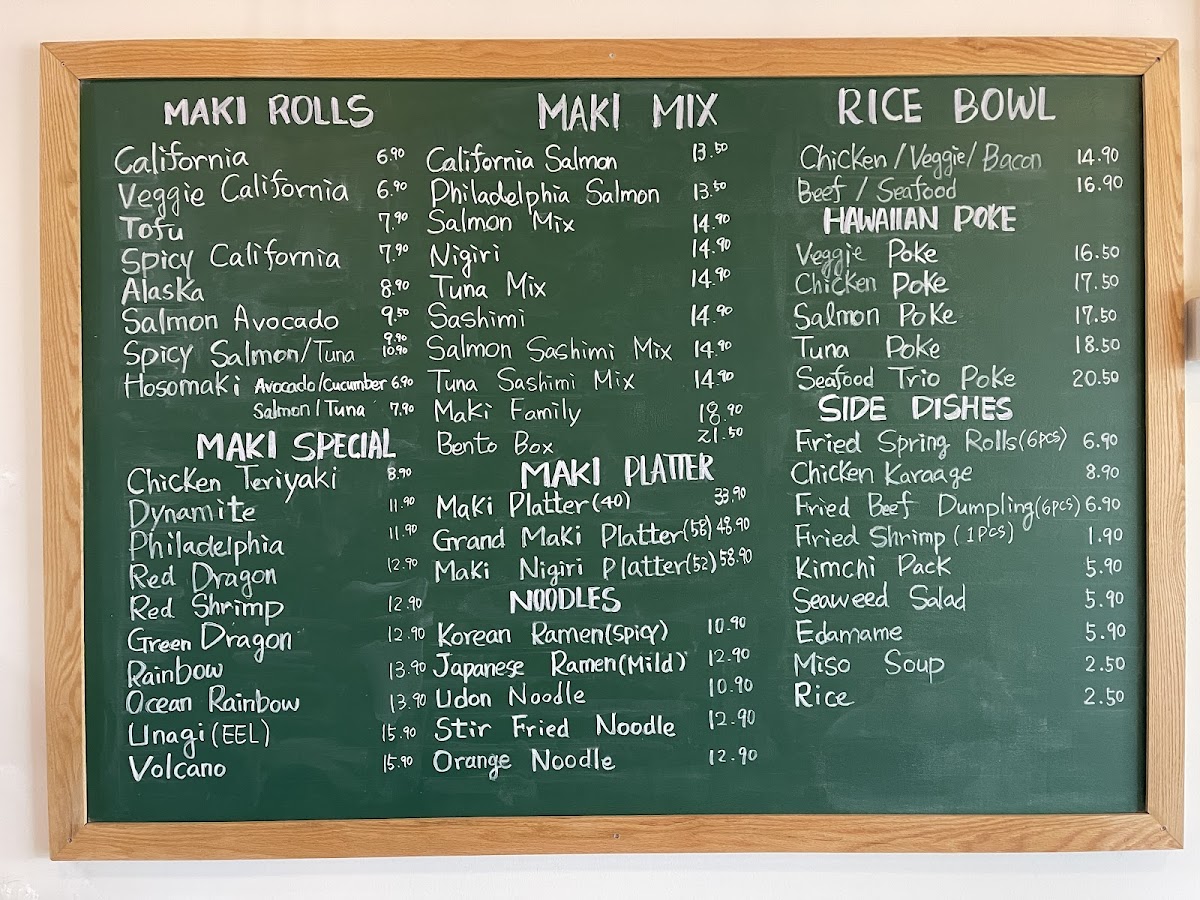 MAKI ROLLS
California 6.90
Veggie California 6.90
Tofu 7.90
Spicy California 7.90
Alaska 8.90
Salmon Avocado 9.50
Spicy Salmon/Tuna 9.90 10.90
Hosomaki Avocado/Cucumber 6.90
Salmon/Tuna 7.90
MAKI SPECIAL
Chicken Teriyaki 8.90
Dynamite 11.90
Philadelphia 11.90
Red Dragon 12.90
Red Shrimp 12.90
Green Dragon 12.90
Rainbow 13.90
Ocean Rainbow 13.90
Unagi (EEL) 15.90
Volcano 15.90
MAKI MIX
California Salmon 13.50
Philadelphia Salmon 13.50
Salmon Mix 14.90
Nigiri 14.90
Tuna Mix 14.90
Sashimi 14.90
Salmon Sashimi Mix 14.90
Tuna Sashimi Mix 14.90
Maki Family 18.90
Bento Box 21.50
MAKI PLATTER
Maki Platter(40) 33.90
Grand Maki Platter(58) 48.90
Maki Nigiri Platter(52) 58.90
NOODLES
Korean Ramen(Spicy) 10.90
Japanese Ramen(Mild) 12.90
Udon Noodle 10.90
Stir Fried Noodle 12.90
Orange Noodle 12.90
RICE BOWL
Chicken/Veggie/Bacon 14.90
Beef/Seafood 16.90
HAWAIIAN POKE
Veggie Poke 16.50
Chicken Poke 17.50
Salmon Poke 17.50
Tuna Poke 18.50
Seafood Trio Poke 20.50
SIDE DISHES
Fried Spring Rolls(6pcs) 6.90
Chicken Karaage 8.90
Fried Beef Dumpling(6pcs) 6.90
Fried Shrimp (1pcs) 1.90
Kimchi Pack 5.90
Seaweed Salad 5.90
Edamame 5.90
Miso Soup 2.50
Rice 2.50